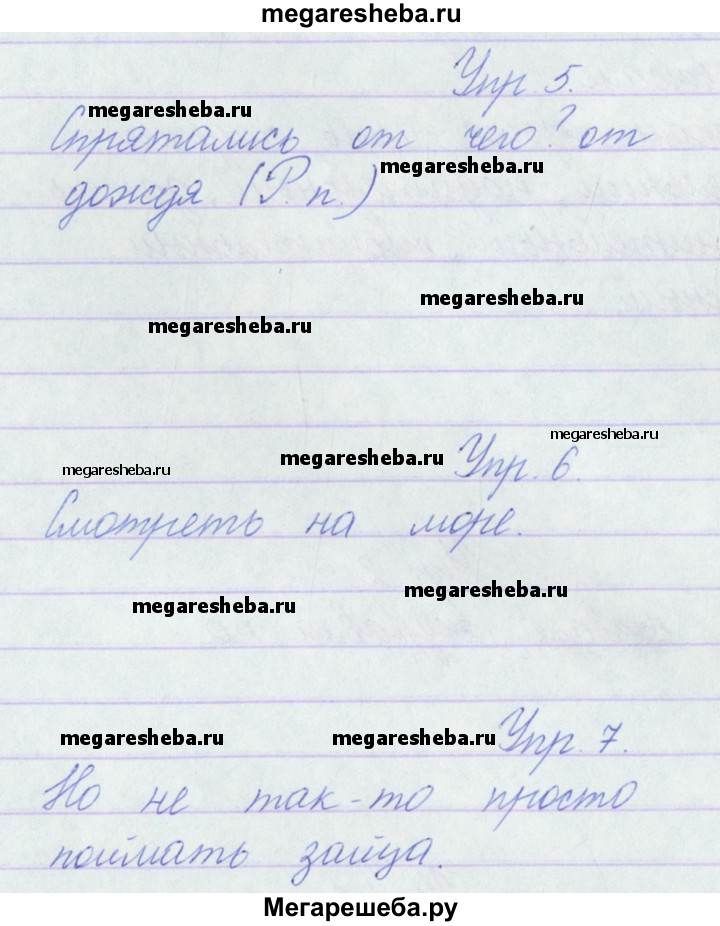 megaresheba.ru
Упр. 5.
megaresheba.ru
Спрятались от чего? от
megaresheba.ru
дождя (Р. п.)
megaresheba.ru
megaresheba.ru
megaresheba.ru
megaresheba.ru
megaresheba.ru
Упр. 6.
Смотреть на море.
megaresheba.ru
megaresheba.ru
megaresheba.ru
megaresheba.ru
Упр. 7.
Но не так-то просто
поймать зайца.
Мегарешеба.ру